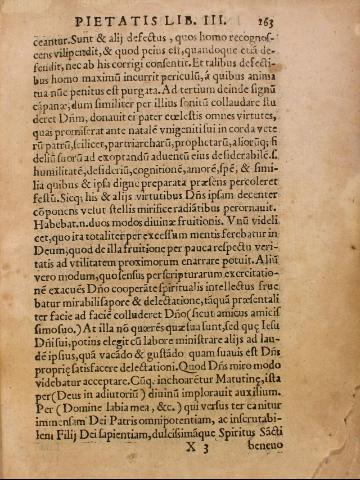 PIETATIS LIB. III. 263
ceantur. Sunt & alij defectus, quos homo recognos-
cens vilipendit, & quod peius est, quandoque etiã de-
fendit, nec ab his corrigi consentit. Et talibus defecti-
bus homo maximũ incurrit periculũ, à quibus anima
tua nũc penitus est purgata. Ad tertium deinde signũ
cãpanæ, dum similiter per illius sonitũ collaudare stu
deret Dñm, donauit ei pater cœlestis omnes virtutes,
quas promiserat ante natalẽ vnigeniti sui in corda vete
rũ patrũ, scilicet, patriarcharũ, prophetarũ, aliorũq; fi
deliũ suorũ ad exoptandũ aduentũ eius desiderabilẽ. s.
humilitatẽ, desideriũ, cognitionẽ, amorẽ, spẽ, & simi-
lia quibus & ipsa digne preparata præsens percoleret
festũ. Sicq; his & alijs virtutibus Dñs ipsam decenter
cõponens velut stellis mirifice radiãtibus perornauit.
Habebat. n. duos modos diuinæ fruitionis. Vnũ videli
cet, quo ita totaliter per excessum mentis ferebatur in
Deum, quod de illa fruitione per pauca respectu veri-
tatis ad vtilitatem proximorum enarrare potuit. Aliũ
vero modum, quo sensus per scripturarum exercitatio-
nẽ exacuẽs Dño cooperãte spiritualis intellectus frue
batur mirabili sapore & delectatione, tãquã præsentali
ter facie ad faciẽ colluderet Dño (sicut amicus amicis
simo suo.) At illa nõ quærẽs quæ sua sunt, sed quę Iesu
Dñi sui, potius elegit cũ labore ministrare alijs ad lau-
dẽ ipsius, quã vacãdo & gustãdo quam suauis est Dñs
proprię satisfacere delectationi. Quod Dñs miro modo
videbatur acceptare. Cũq. inchoarẽtur Matutinę, ista
per (Deus in adiutoriũ) diuinũ implorauit auxilium.
Per (Domine labia mea, &c.) qui versus ter canitur
immensam Dei Patris omnipotentiam, ac inscrutabi-
lem Filij Dei sapientiam, dulcissimãque Spiritus Sãcti
X 3 beneuo